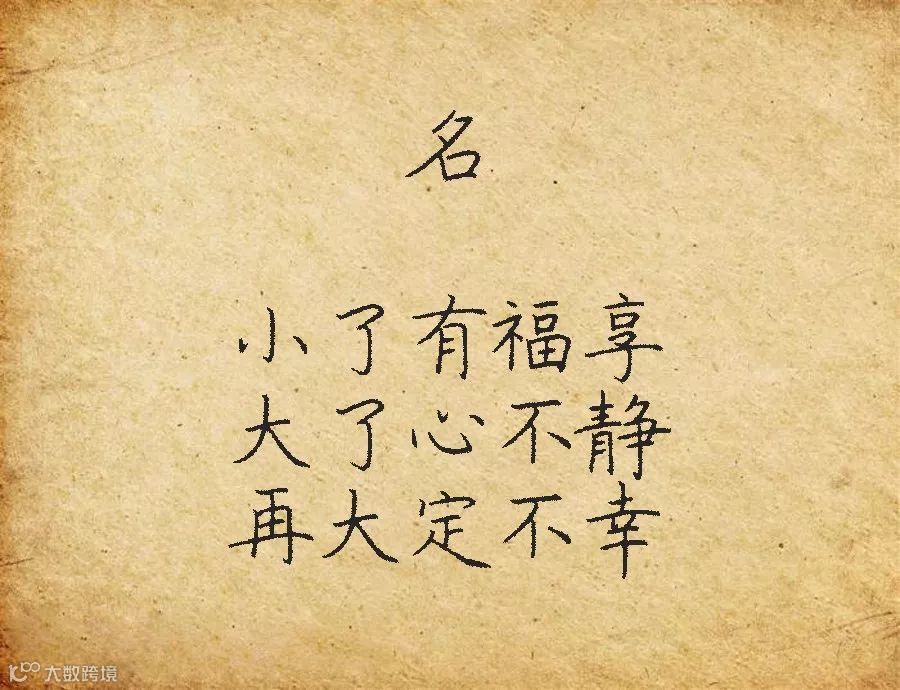 名
小了有福享
大了心不静
再大定不幸
大数跨境